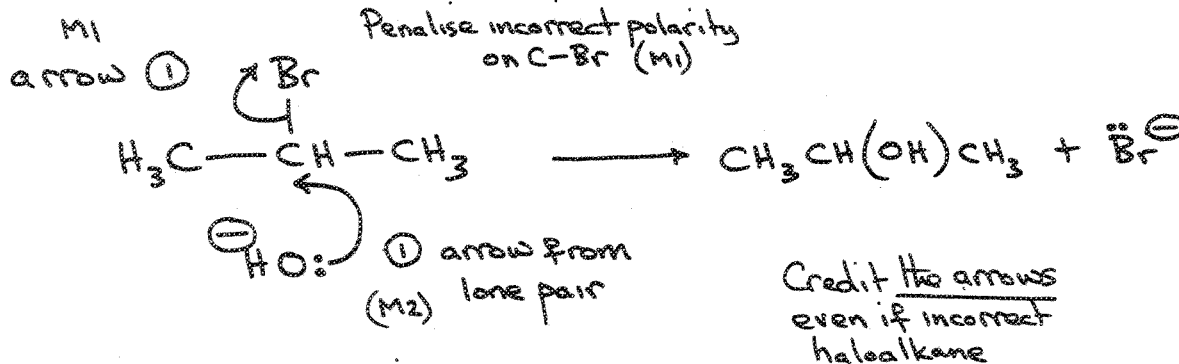 M1
arrow ①
Penalise incorrect polarity
on C-Br (M1)
Br
H₃C — CH — CH₃ ⟶ CH₃CH(OH)CH₃ + B̈r⊖
⊖
HO:
① arrow from
(M2) lone pair
Credit the arrows
even if incorrect
haloalkane